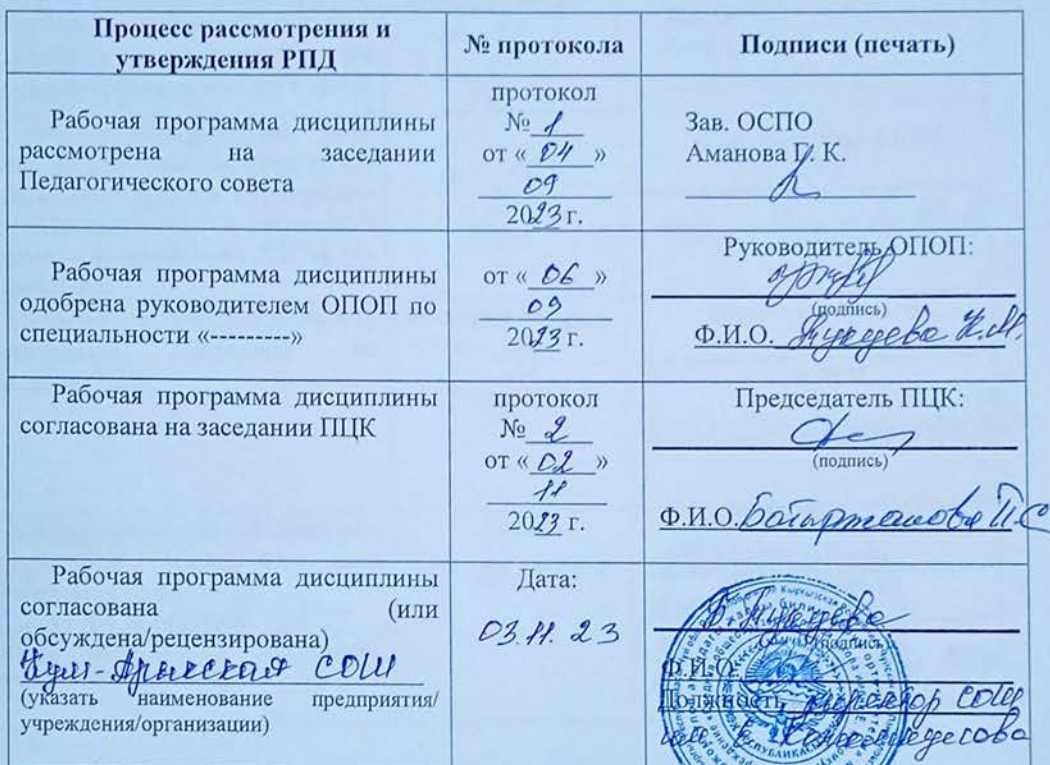 Процесс рассмотрения и
утверждения РПД
№ протокола
Подписи (печать)
Рабочая программа дисциплины
рассмотрена на заседании
Педагогического совета
протокол
№ 1
от « 04 »
09
2023 г.
Зав. ОСПО
Аманова Г. К.
Рабочая программа дисциплины
одобрена руководителем ОПОП по
специальности «---------»
от « 06 »
09
2023 г.
Руководитель ОПОП:
(подпись)
Ф.И.О.
Рабочая программа дисциплины
согласована на заседании ПЦК
протокол
№ 2
от « 02 »
11
2023 г.
Председатель ПЦК:
(подпись)
Ф.И.О.
Рабочая программа дисциплины
согласована (или
обсуждена/рецензирована)
СОШ
(указать наименование предприятия/
учреждения/организации)
Дата:
03.11.23
(подпись)
Ф.И.О.
Должность директор СОШ
им.